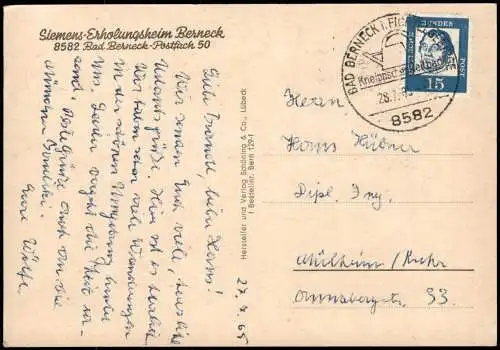 Siemens-Erholungsheim Berneck
8582 Bad Berneck-Postfach 50
27.7.65
Liebe Irmendl, lieber Hans!
Wir senden Euch viele, herzliche
Urlaubsgrüße. Hier ist es herrlich
Wir haben schon viele Wanderungen
in der schönen Umgebung hinter
uns. Leider vergeht die Zeit ra-
send. Viele Grüße auch an die
Eure
Hersteller und Verlag Schöning & Co., Lübeck
1 Bestellnr. Bern 129-1
BAD BERNECK i. FICHTELGEBIRGE
Kneippheilbad
28.7.65
8582
DEUTSCHE BUNDESPOST
15
Herrn
Hans Hübner
Dipl. Ing.
Mülheim/Ruhr
Annabergstr. 33.